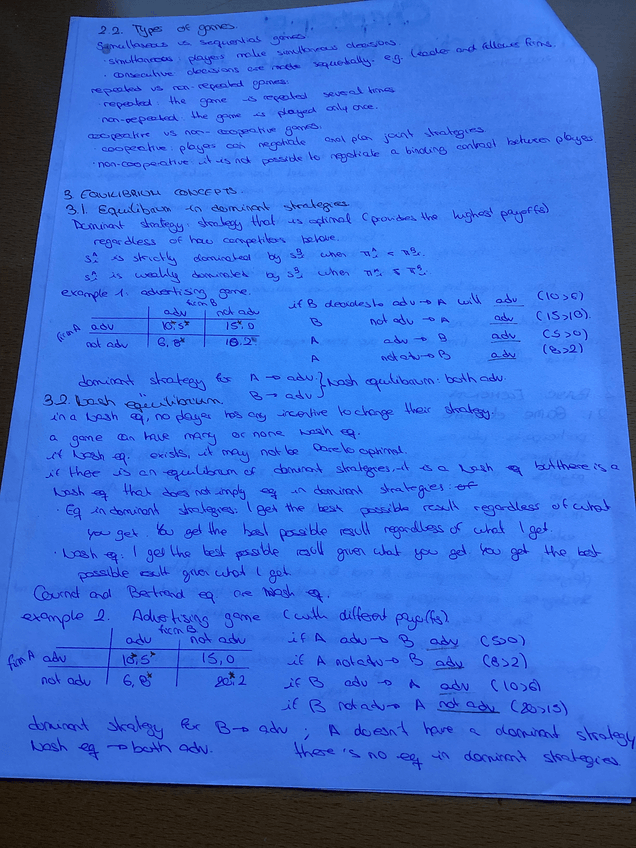 2.2. Types of games.
Simultaneous vs sequential games.
· simultaneous: players make simultaneous decisions.
· consecutive decisions are made sequentally. e.g. leader and follower firms.
repeated vs non-repeated games.
· repeated: the game is repeated several times
non-repeated: the game is played only once.
cooperative vs non-cooperative games.
· cooperative: players can negotiate and plan joint strategies.
· non-cooperative: it is not possible to negotiate a binding contract between players
3 EQUILIBRIUM CONCEPTS.
3.1. Equilibrium in dominant strategies.
Dominant strategy: strategy that is optimal (provides the highest payoffs)
regardless of how competitors behave.
is strictly dominated by when
is weakly dominated by when
example 1. advertising game.
firm B
adv not adv
firm A adv 10*,5* 15*,0
not adv 6,8* 10,2
if B decides to adv → A will adv (10>6)
B not adv → A adv (15>10).
A adv → B adv (5>0)
A not adv → B adv (8>2)
dominant strategy for A → adv } Nash equilibrium: both adv.
B → adv
3.2. Nash equilibrium.
in a Nash eq, no player has any incentive to change their strategy.
a game can have many or none Nash eq.
if Nash eq. exists, it may not be Pareto optimal.
if there is an equilibrium of dominant strategies, it is a Nash eq but there is a
Nash eq that does not imply eq in dominant strategies:
· Eq in dominant strategies: I get the best possible result regardless of what
you get. You get the best possible result regardless of what I get.
· Nash eq: I get the best possible result given what you get. You get the best
possible result given what I get.
Cournot and Bertrand eq are Nash eq.
example 2. Advertising game (with different payoffs).
firm B
adv not adv
firm A adv 10*,5* 15,0
not adv 6,8* 20*,2
if A adv → B adv (5>0)
if A not adv → B adv (8>2)
if B adv → A adv (10>6)
if B not adv → A not adv (20>15)
dominant strategy for B → adv ; A doesn't have a dominant strategy
Nash eq → both adv. there's no eq in dominant strategies